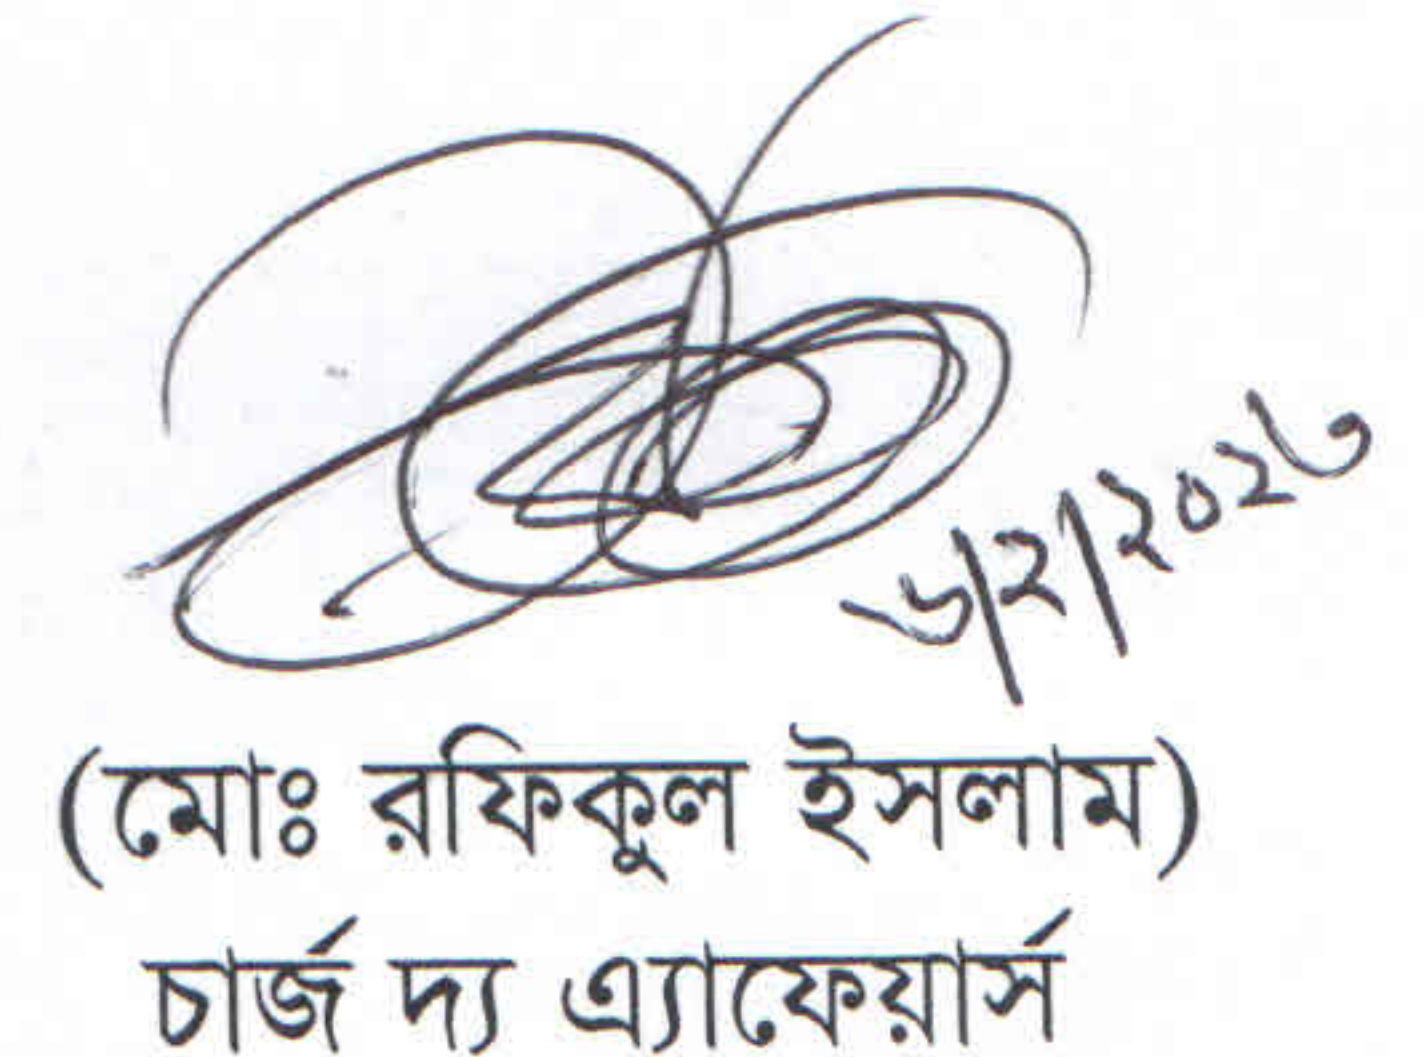 ৬/২/২০২৩
(মোঃ রফিকুল ইসলাম)
চার্জ দ্য এ্যাফেয়ার্স